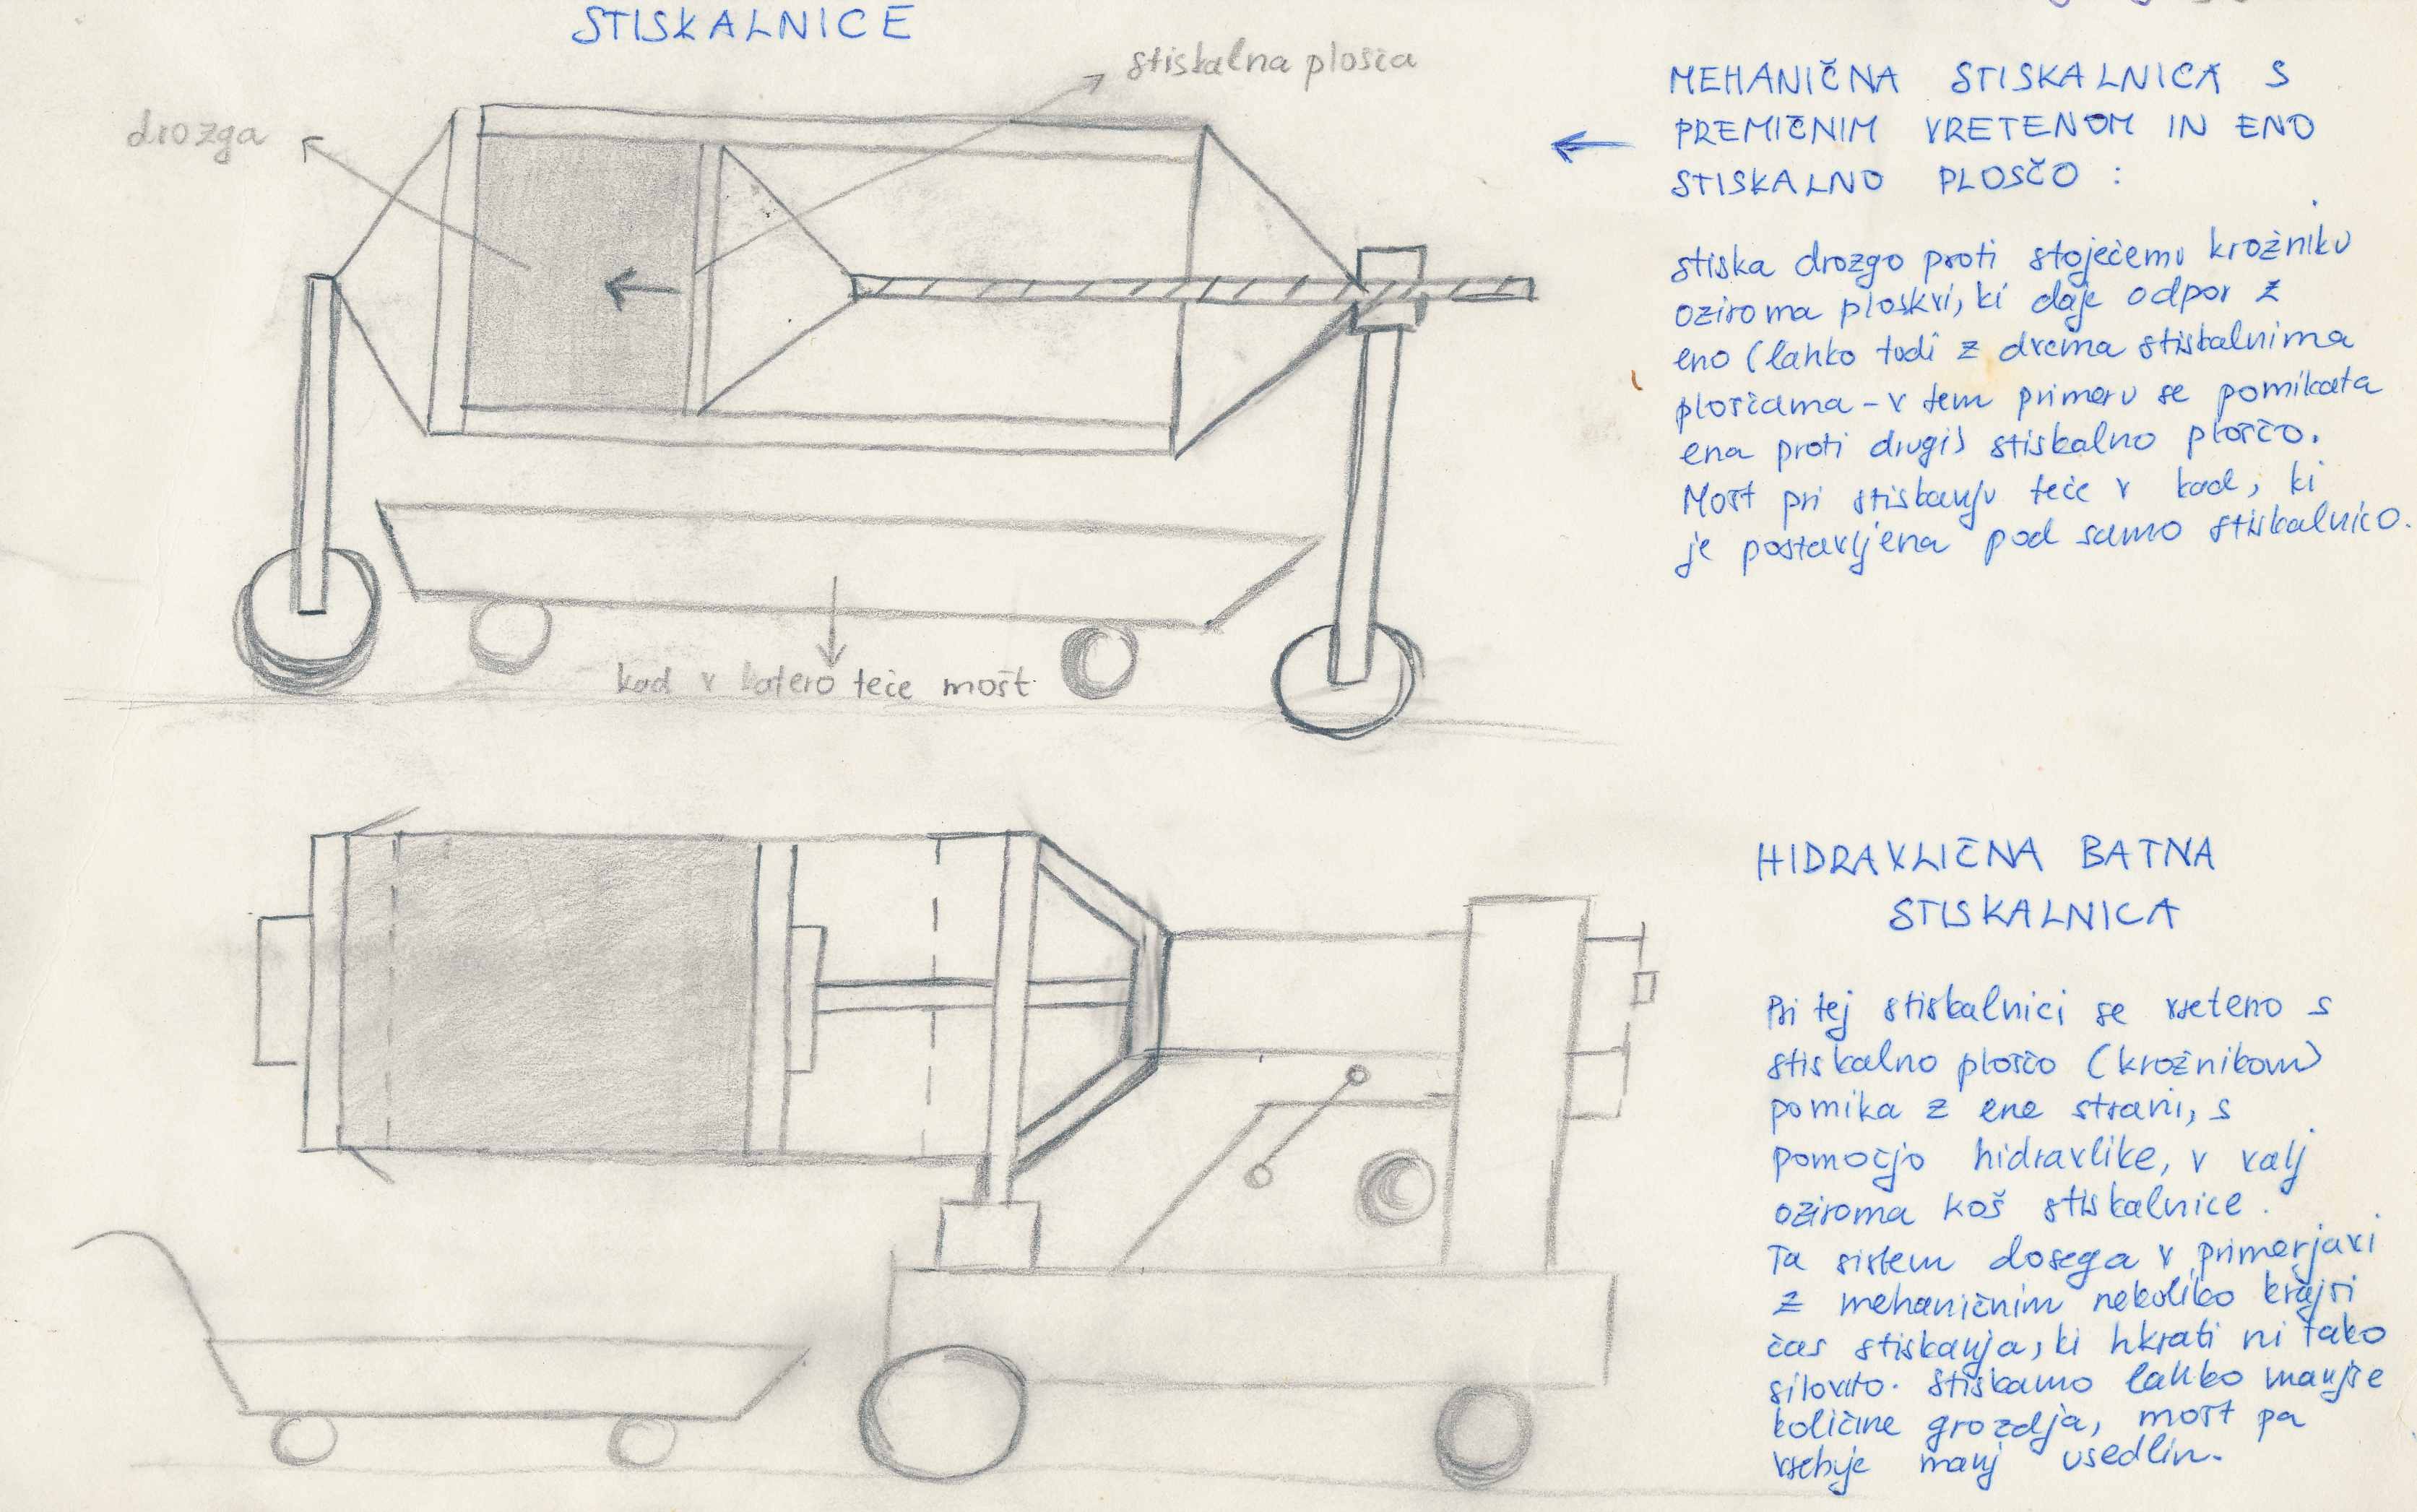 STISKALNICE
stiskalna plošča
drozga
kad v katero teče mošt
MEHANIČNA STISKALNICA S
PREMIČNIM VRETENOM IN ENO
STISKALNO PLOSČO :
stiska drozgo proti stoječemu krožniku
oziroma ploskvi, ki daje odpor z
eno (lahko tudi z dvema stiskalnima
ploščama - v tem primeru se pomikata
ena proti drugi) stiskalno ploščo.
Mošt pri stiskanju teče v kad, ki
je postavljena pod samo stiskalnico.
HIDRAVLIČNA BATNA
STISKALNICA
Pri tej stiskalnici se vreteno s
stiskalno ploščo (krožnikom)
pomika z ene strani, s
pomočjo hidravlike, v valj
oziroma koš stiskalnice.
Ta sistem dosega v primerjavi
z mehaničnim nekoliko krajši
čas stiskanja, ki hkrati ni tako
silovito. Stiskamo lahko manjše
količine grozdja, mošt pa
vsebuje manj usedlin.